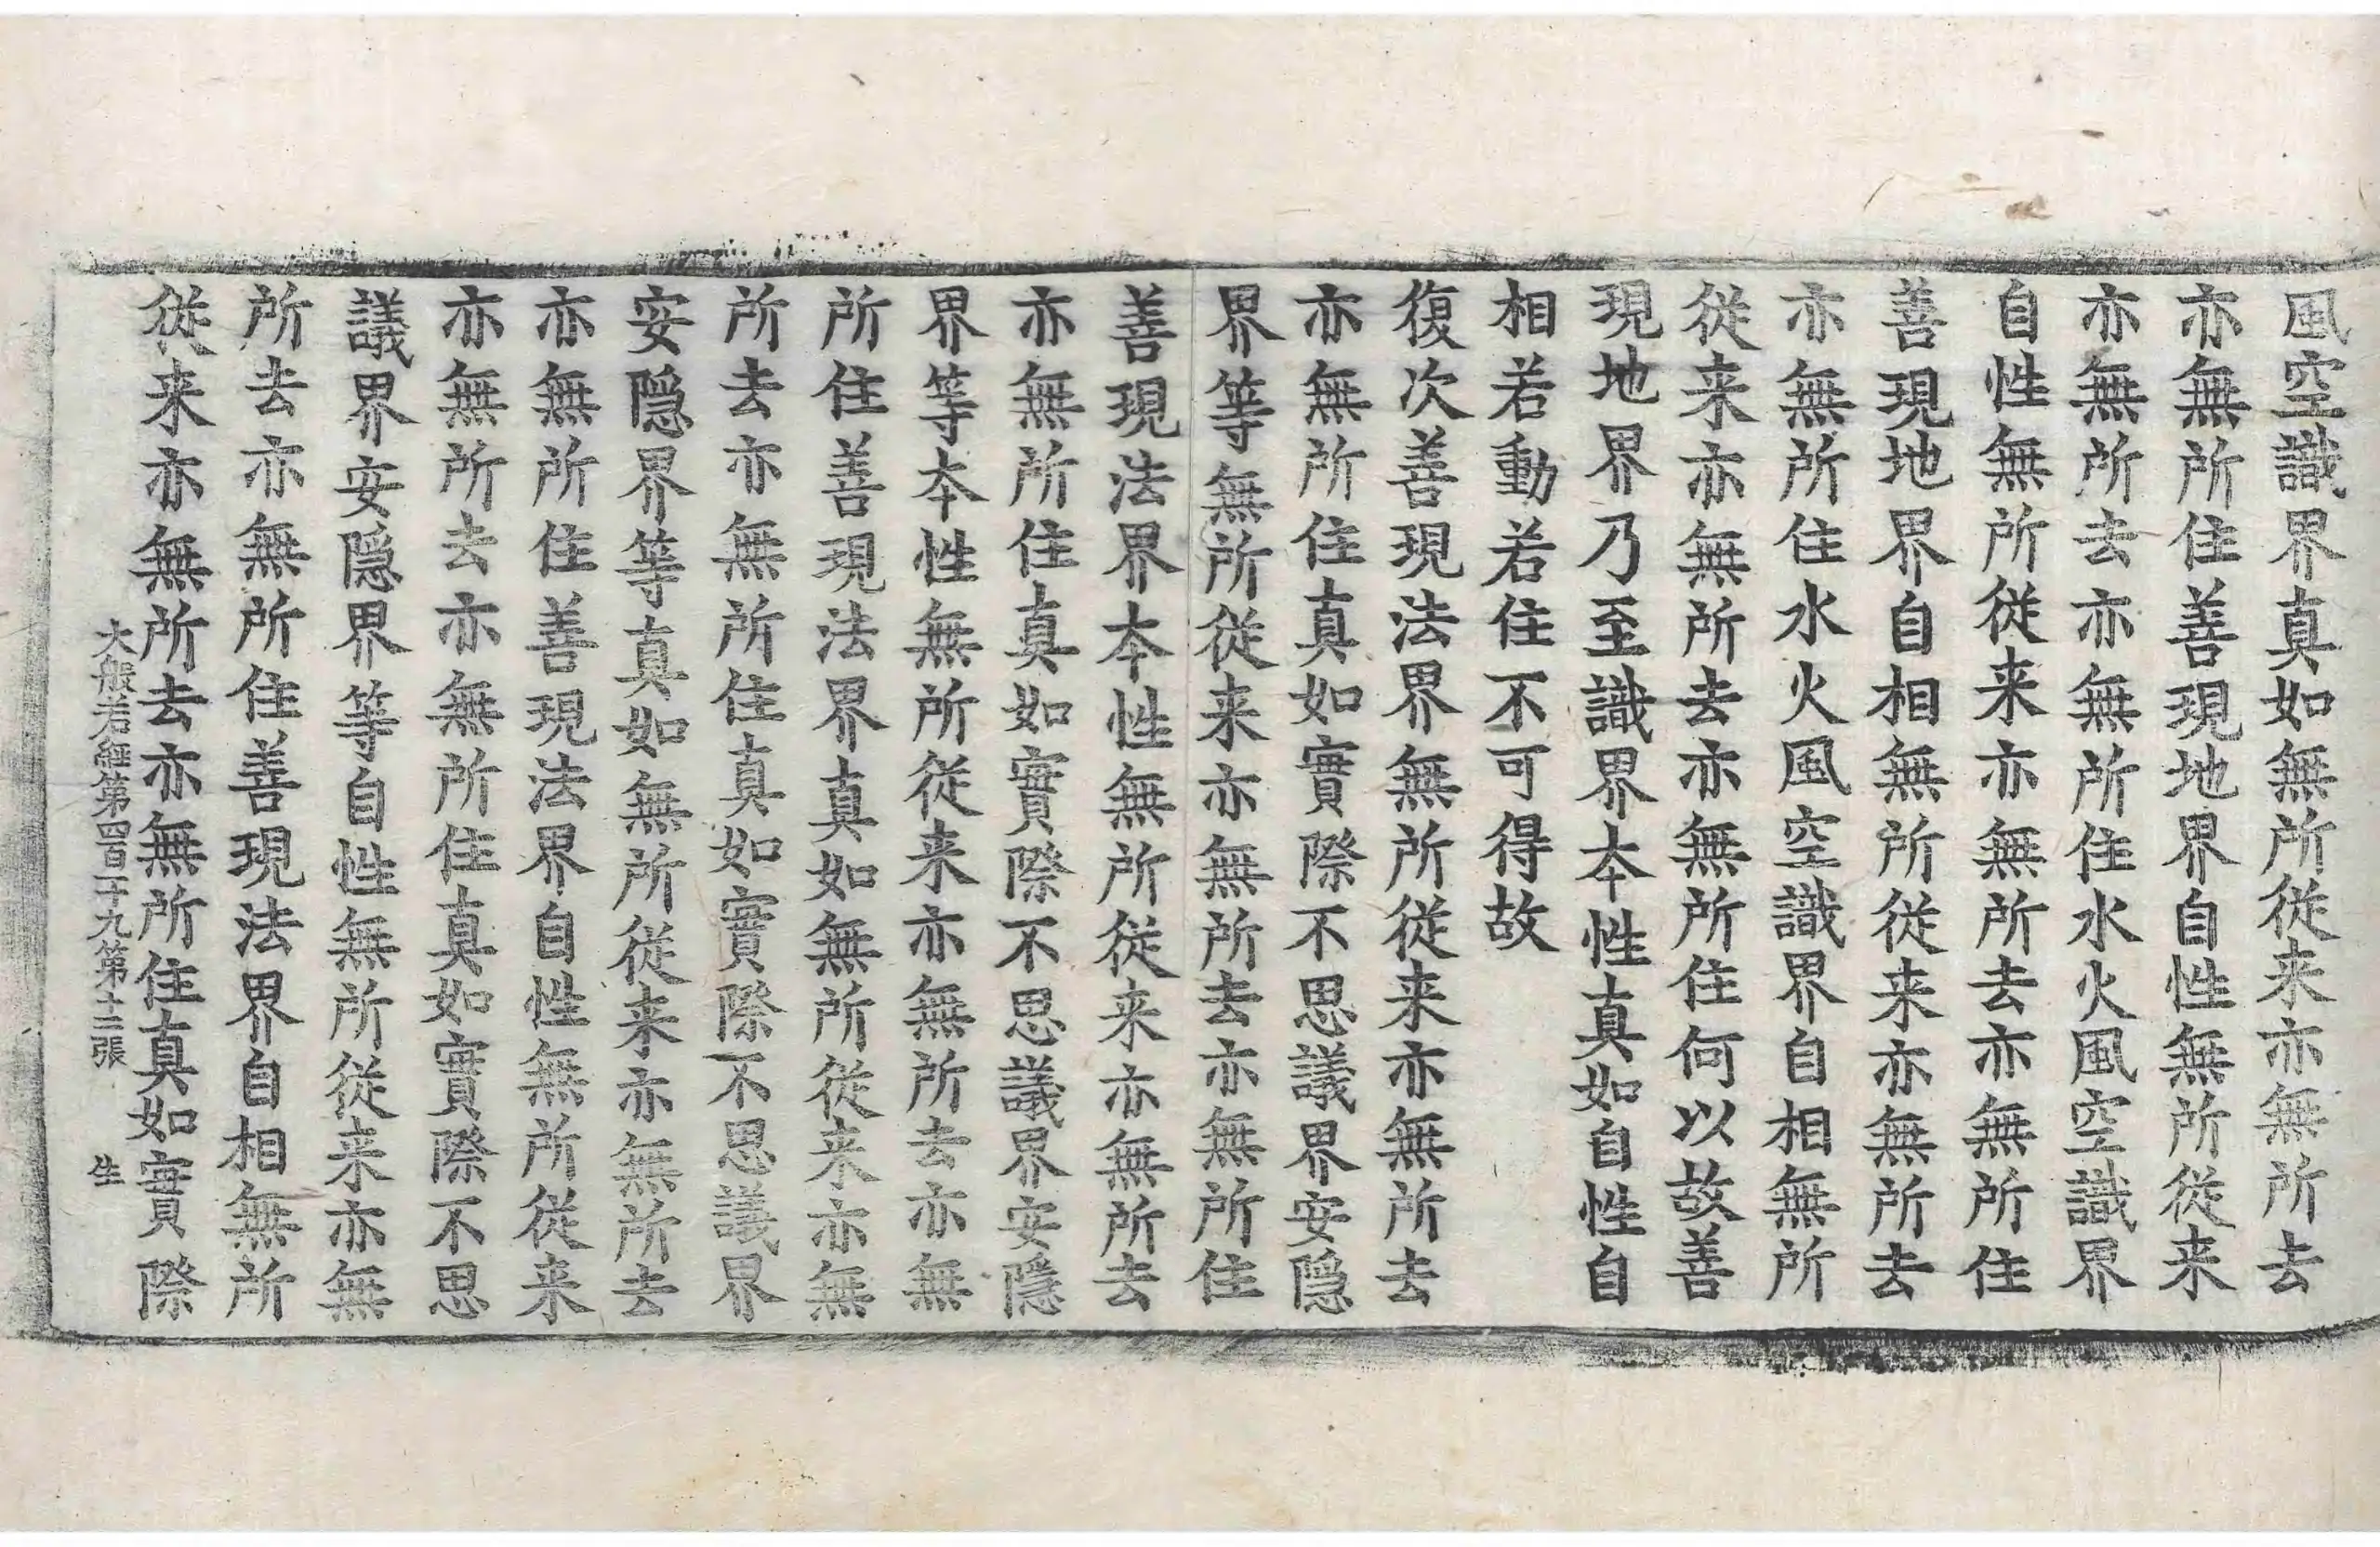 風空識界真如無所從来亦無所去
亦無所住善現地界自性無所從来
亦無所去亦無所住水火風空識界
自性無所從来亦無所去亦無所住
善現地界自相無所從来亦無所去
亦無所住水火風空識界自相無所
從来亦無所去亦無所住何以故善
現地界乃至識界本性真如自性自
相若動若住不可得故
復次善現法界無所從来亦無所去
亦無所住真如實際不思議界安隱
界等無所從来亦無所去亦無所住
善現法界本性無所從来亦無所去
亦無所住真如實際不思議界安隱
界等本性無所從来亦無所去亦無
所住善現法界真如無所從来亦無
所去亦無所住真如實際不思議界
安隱界等真如無所從来亦無所去
亦無所住善現法界自性無所從来
亦無所去亦無所住真如實際不思
議界安隱界等自性無所從来亦無
所去亦無所住善現法界自相無所
從来亦無所去亦無所住真如實際
大般若經第四百一十九第十二張 生